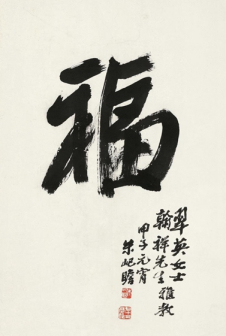 福
翠英女士
翰祥先生雅教
甲子元宵
朱屺瞻